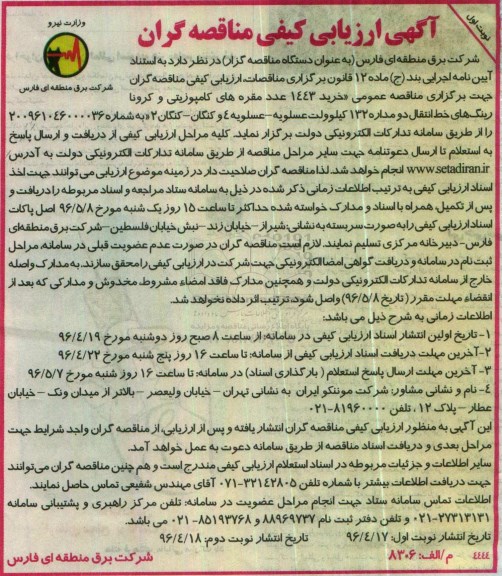 نوبت اول
آگهی ارزیابی کیفی مناقصه گران
وزارت نیرو
شرکت برق منطقه ای فارس
شرکت برق منطقه ای فارس (به عنوان دستگاه مناقصه گزار) در نظر دارد به استناد
آیین نامه اجرایی بند (ج) ماده ۱۲ قانون برگزاری مناقصات، ارزیابی کیفی مناقصه گران
جهت برگزاری مناقصه عمومی «خرید ۱۴۴۳ عدد مقره های کامپوزیتی و کرونا
رینگ های خط انتقال دو مداره ۱۳۲ کیلوولت عسلویه – عسلویه ۴ و کنگان – کنگان ۲» به شماره ۲۰۰۹۶۱۰۴۶۰۰۰۰۳۶
را از طریق سامانه تدارکات الکترونیکی دولت برگزار نماید. کلیه مراحل ارزیابی کیفی از دریافت و ارسال پاسخ
به استعلام تا ارسال دعوتنامه جهت سایر مراحل مناقصه از طریق سامانه تدارکات الکترونیکی دولت به آدرس
www.setadiran.ir انجام خواهد شد. لذا مناقصه گران صلاحیت دار در زمینه موضوع ارزیابی می توانند جهت اخذ
اسناد ارزیابی کیفی به ترتیب اطلاعات زمانی ذکر شده در ذیل به سامانه ستاد مراجعه و اسناد مربوطه را دریافت و
پس از تکمیل، همراه با اسناد و مدارک خواسته شده حداکثر تا ساعت ۱۵ روز یک شنبه مورخ ۹۶/۵/۸ اصل پاکات
اسناد ارزیابی کیفی را به صورت سربسته به نشانی: شیراز – خیابان زند – نبش خیابان فلسطین – شرکت برق منطقه ای
فارس – دبیرخانه مرکزی تسلیم نمایند. لازم است مناقصه گران در صورت عدم عضویت قبلی در سامانه، مراحل
ثبت نام در سامانه و دریافت گواهی امضا الکترونیکی جهت شرکت در ارزیابی کیفی را محقق سازند. به مدارک واصله
خارج از سامانه تدارکات الکترونیکی دولت و همچنین مدارک فاقد امضاء مشروط، مخدوش و مدارکی که بعد از
انقضاء مهلت مقرر (تاریخ ۹۶/۵/۸) واصل شود، ترتیب اثر داده نخواهد شد.
اطلاعات زمانی به شرح ذیل می باشد:
۱- تاریخ اولین انتشار اسناد ارزیابی کیفی در سامانه: از ساعت ۸ صبح روز دوشنبه مورخ ۹۶/۴/۱۹
۲- آخرین مهلت دریافت اسناد ارزیابی کیفی از سامانه: تا ساعت ۱۶ روز پنج شنبه مورخ ۹۶/۴/۲۲
۳- آخرین مهلت ارسال پاسخ استعلام (بارگذاری اسناد) در سامانه: تا ساعت ۱۶ روز شنبه مورخ ۹۶/۵/۷
۴- نام و نشانی مشاور: شرکت موننکو ایران به نشانی تهران – خیابان ولیعصر – بالاتر از میدان ونک – خیابان
عطار – پلاک ۱۲، تلفن ۸۱۹۶۰۰۰۰-۰۲۱
این آگهی به منظور ارزیابی کیفی مناقصه گران انتشار یافته و پس از ارزیابی، از مناقصه گران واجد شرایط جهت
مراحل بعدی و دریافت اسناد مناقصه از طریق سامانه دعوت به عمل خواهد آمد.
سایر اطلاعات و جزئیات مربوطه در اسناد استعلام ارزیابی کیفی مندرج است و هم چنین مناقصه گران می توانند
جهت دریافت اطلاعات بیشتر با شماره تلفن ۳۲۱۴۲۸۰۵-۰۷۱ آقای مهندس شفیعی تماس حاصل نمایند.
اطلاعات تماس سامانه ستاد جهت انجام مراحل عضویت در سامانه: تلفن مرکز راهبری و پشتیبانی سامانه
۲۷۳۱۳۱۳۱-۰۲۱ و تلفن دفتر ثبت نام ۸۸۹۶۹۷۳۷ و ۸۵۱۹۳۷۶۸-۰۲۱ می باشد.
تاریخ انتشار نوبت اول: ۹۶/۴/۱۷ تاریخ انتشار نوبت دوم: ۹۶/۴/۱۸
۴۴۴۴ م/الف: ۸۳۰۶ شرکت برق منطقه ای فارس